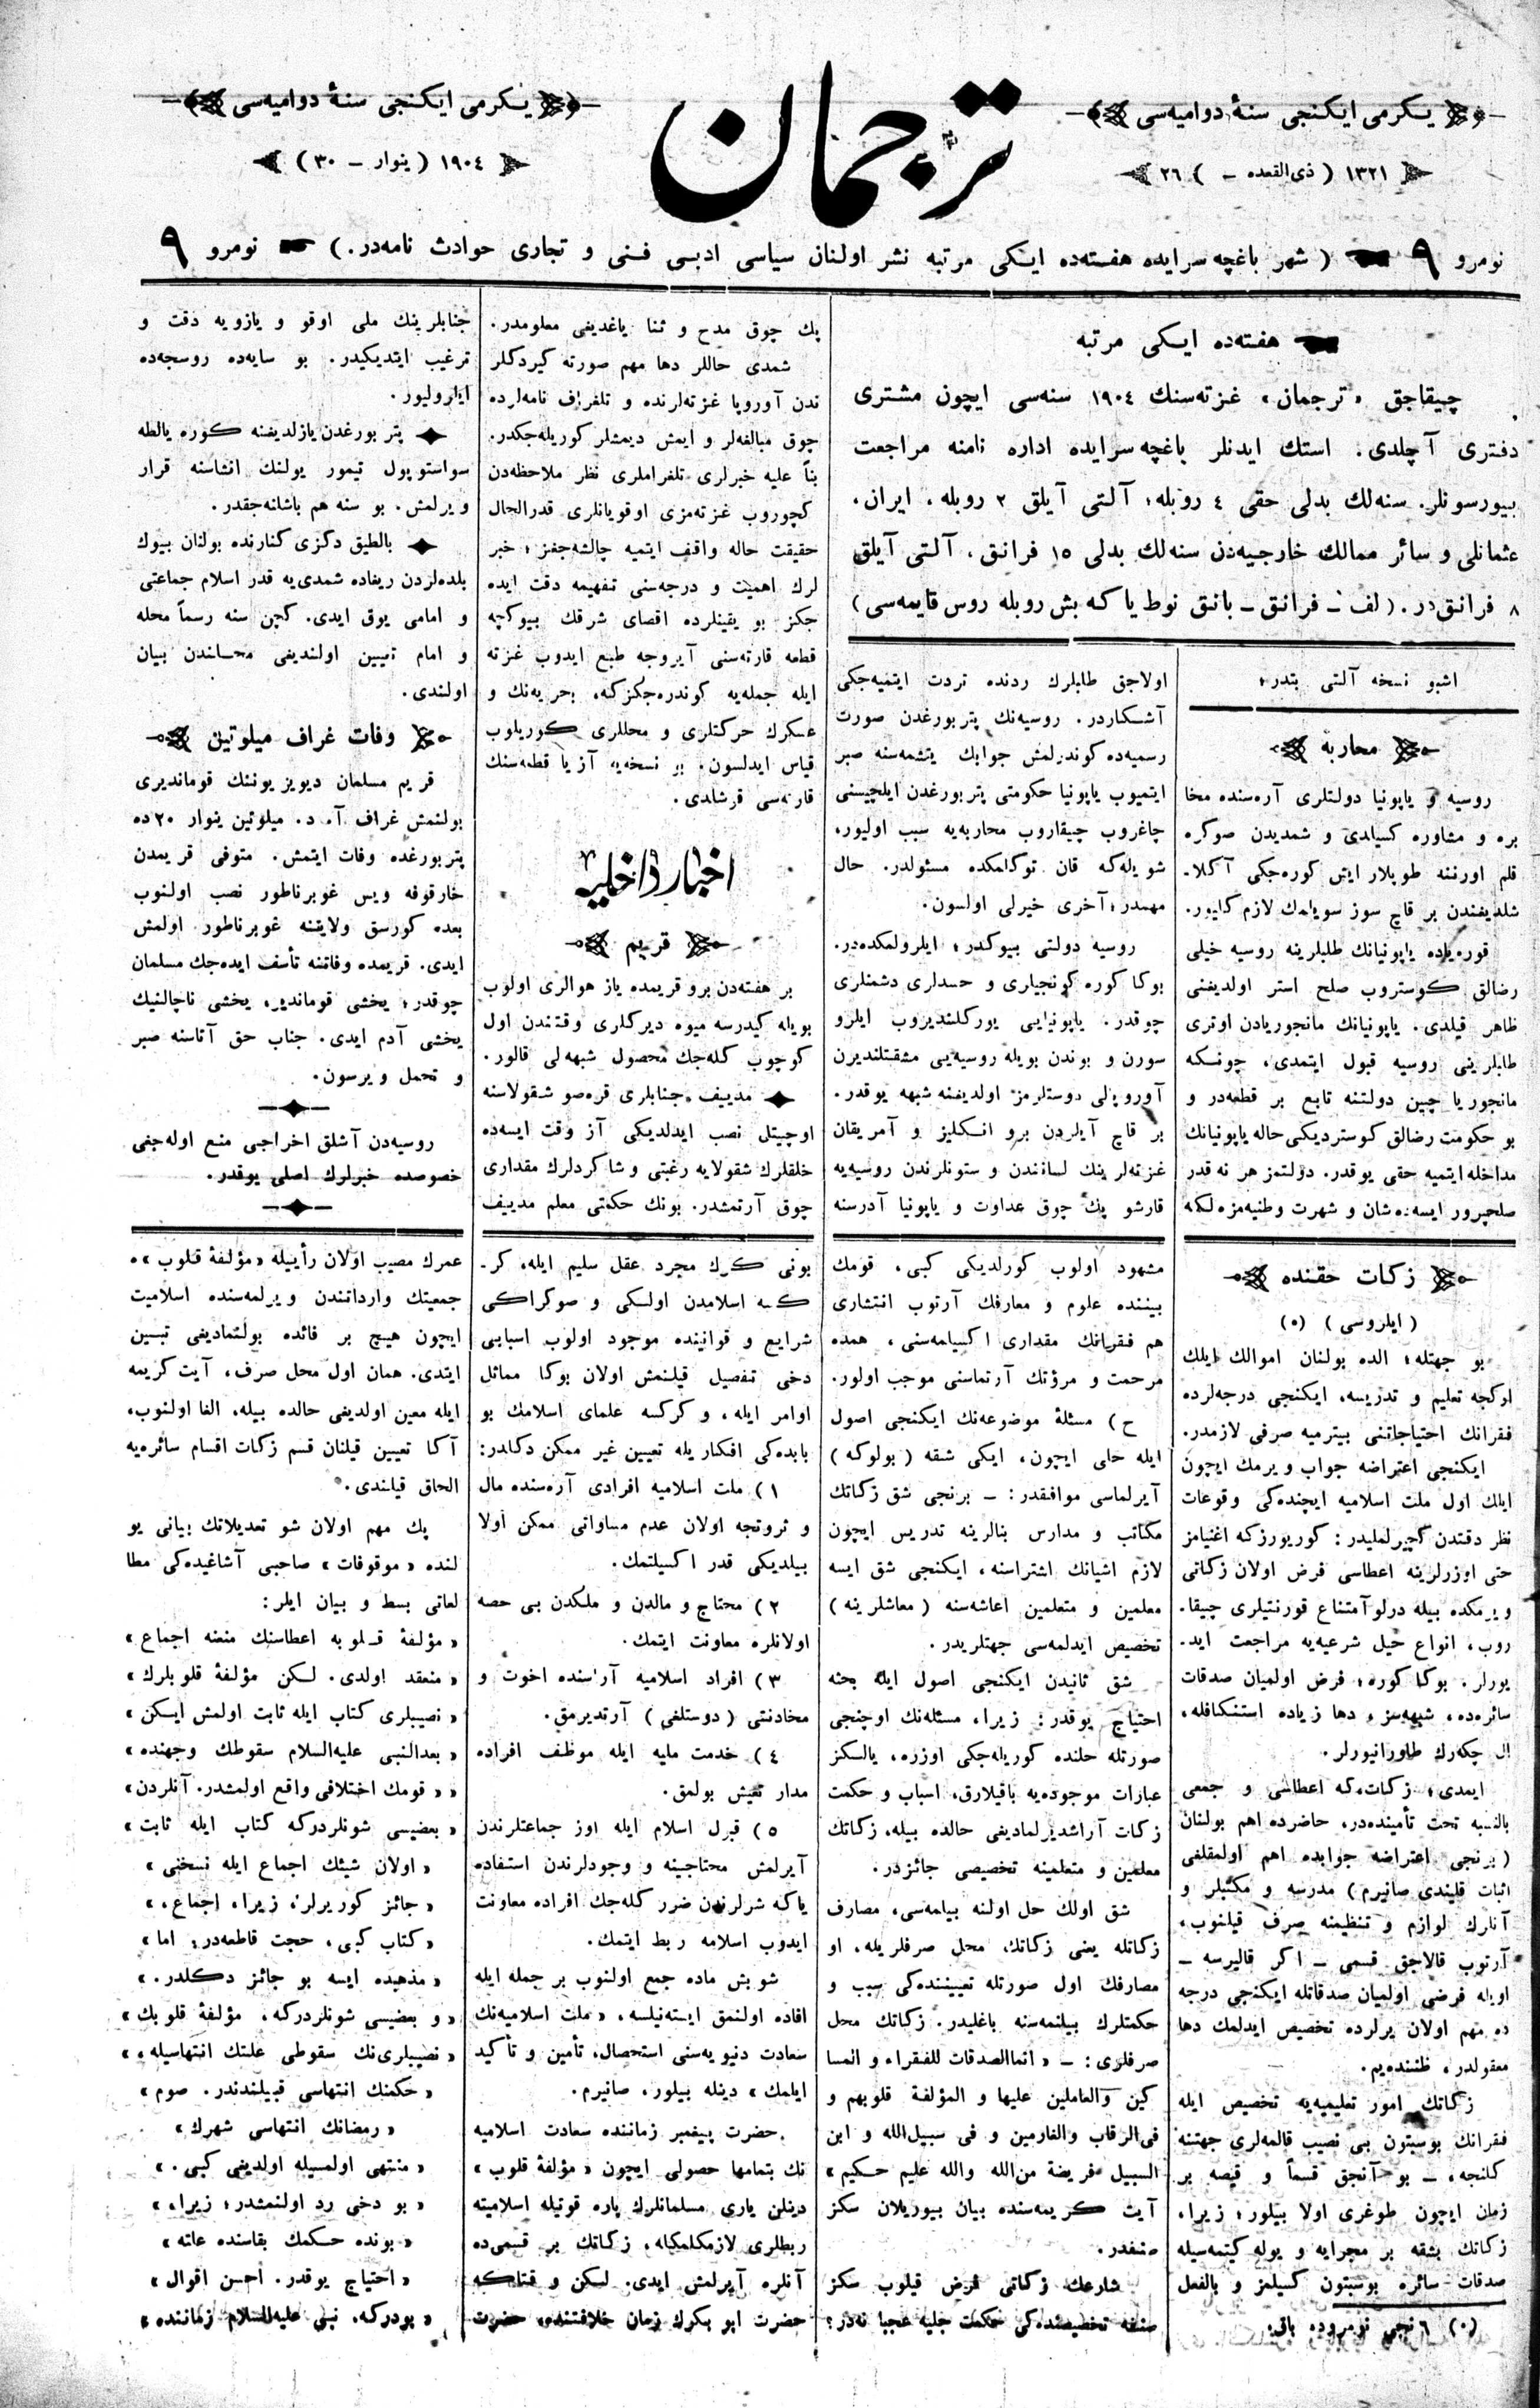 یكرمی ایكنجی سنهٔ دوامیه‌سی
۱۳۲۱ ( ذی‌القعده – ) ۲۶
ترجمان
یكرمی ایكنجی سنهٔ دوامیه‌سی
۱۹۰٤ ( ینوار – ۳۰ )
نومرو ۹ ( شهر باغچه سرایده هفته‌ده ایكی مرتبه نشر اولنان سیاسی ادبی فـنی و تجاری حوادث نامه‌در. ) نومرو ۹
هفته‌ده ایكی مرتبه
چیقاجق «ترجمان» غزته‌سنك ۱۹۰٤ سنه‌سی ایچون مشتری
دفتری آچلدی. استك ایدنلر باغچه سرایده اداره نامنه مراجعت
بیورسونلر. سنه‌لك بدلی حقی ٤ روبله؛ آلتی آیلق ۲ روبله. ایران،
عثمانلی و سائر ممالك خارجیه‌دن سنه‌لك بدلی ۱٥ فرانق، آلتی آیلق
۸ فرانق‌در. ( لف – فرانق – بانق نوط یا كه بش روبله روس قایمه‌سی )
اشبو نسخه آلتی بتدر؛
محاربه
روسیه و یاپونیا دولتلری آره‌سنده مخا
بره و مشاوره كسیلدی و شمدیدن صوكره
قلم اورننه طوبلار ایش كوره‌جكی آكلا-
شلدیغندن بر قاچ سوز سویلمك لازم كلیور.
قوره‌یاده یاپونیانك طلبلرینه روسیه خیلی
رضالق كوستروب صلح استر اولدیغنی
ظاهر قیلدی. یاپونیانك مانجوریادن اوتری
طلبلرینی روسیه قبول ایتمدی، چونكه
مانجوریا چین دولتنه تابع بر قطعه‌در و
بو حكومت رضالق كوستردیكی حاله یاپونیانك
مداخله ایتمیه حقی یوقدر. دولتمز هر نه قدر
صلحپرور ایسه‌ده شان و شهرت وطنیه‌مزه لكه
اولاجق طلبلرك ردنده تردت ایتمیه‌جكی
آشكاردر. روسیه‌نك پتربورغدن صورت
رسمیه‌ده كوندرلمش جوابك یتشمه‌سنه صبر
ایتمیوب یاپونیا حكومتی پتربورغدن ایلچیسنی
چاغروب چیقاروب محاربه‌یه سبب اولیور،
شویله‌كه قان توكلمكده مسئولدر. حال
مهمدر؛ آخری خیرلی اولسون.
روسیه دولتی بیوكدر؛ ایلرولمكده‌در.
بوكا كوره كونجیلری و حسدلری دشمنلری
چوقدر. یاپونیایی یوركلندیروب ایلرو
سورن و بوندن بویله روسیه‌یی مشقتلندیرن
آوروپالی دوستلرمز اولدیغنه شبهه یوقدر.
بر قاچ آیلردن برو انكلیز و آمریقان
غزته‌لرینك لسانندن و ستونلرندن روسیه‌یه
قارشو پك چوق عداوت و یاپونیا آدرسنه
پك چوق مدح و ثنا یاغدیغی معلومدر.
شمدی حاللر دها مهم صورته كیردكلر
ندن آوروپا غزته‌لرنده و تلغراف نامه‌لرده
چوق مبالغه‌لر و ایمش دیمشلر كوریله‌جكدر.
بناً علیه خبرلری تلغراملری نظر ملاحظه‌دن
كچوروب غزته‌مزی اوقویانلری قدرالحال
حقیقت حاله واقف ایتمیه چالشه‌جغز؛ خبر
لرك اهمیت و درجه‌سنی تفهیمه دقت ایده
جكز بو یقینلرده اقصای شرقك بیوكچه
قطعه قارته‌سنی آیروجه طبع ایدوب غزته
ایله جمله‌یه كوندره‌جكزكه، بحریه‌نك و
عسكرك حركتلری و محللری كوریلوب
قیاس ایدلسون. بو نسخه‌یه آزیا قطعه‌سنك
قارته‌سی قوشلدی.
اخبار داخلیه
قریم
بر هفته‌دن برو قریمده یاز هوالری اولوب
بویله كیدرسه میوه دیركلری وقتندن اول
كوچوب كله‌جك محصول شبهه‌لی قالور.
مدییف جنابلری قره‌صو شقولاسنه
اوچیتل نصب ایدلدیكی آز وقت ایسه‌ده
خلقلرك شقولایه رغبتی و شاكردلرك مقداری
چوق آرتمشدر. بونك حكمتی معلم مدییف
جنابلرینك ملی اوقو و یازویه دقت و
ترغیب ایتدیكیدر. بو سایه‌ده روسجه‌ده
ایلرولیور.
پتربورغدن یازلدیغنه كوره یالطه
سواستوپول تیمور یولنك انشاسنه قرار
ویرلمش. بو سنه هم باشلنه‌جقدر.
بالطیق دكزی كنارنده بولنان بیوك
بلده‌لردن ریغاده شمدی‌یه قدر اسلام جماعتی
و امامی یوق ایدی. كچن سنه رسماً محله
و امام تعیین اولندیغی محلندن بیان
اولندی.
وفات غراف میلوتین
قریم مسلمان دیویزیوننك قوماندیری
بولنمش غراف آ. د. میلوتین ینوار ۲۰ده
پتربورغده وفات ایتمش. متوفی قریمدن
خارقوفه ویس غوبرناطور نصب اولنوب
بعده كورسق ولایتنه غوبرناطور اولمش
ایدی. قریمده وفاتنه تأسف ایده‌جك مسلمان
چوقدر؛ یخشی قوماندیر، یخشی ناچالنیك
یخشی آدم ایدی. جناب حق آتاسنه صبر
و تحمل ویرسون.
روسیه‌دن آشلق اخراجی منع اوله‌جغی
خصوصده خبرلرك اصلی یوقدر.
زكات حقنده
( ایلروسی ) (٠)
بو جهتله؛ الده بولنان اموالك ایلك
اوكجه تعلیم و تدریسه، ایكنجی درجه‌لرده
فقرانك احتیاجاتنی بیترمیه صرفی لازمدر.
ایكنجی اعتراضه جواب ویرمك ایچون
ایلك اول ملت اسلامیه ایچنده‌كی وقوعات
نظر دقتدن كچیرلملیدر: كوریورزكه اغنیامز
حتی اوزرلرینه اعطاسی فرض اولان زكاتی
ویرمكده بیله درلو آمتناع قورنتیلری چیقا-
روب، انواع حیل شرعیه‌یه مراجعت اید-
یورلر. بوكا كوره؛ فرض اولمیان صدقات
سائره‌ده، شبهه‌سز، دها زیاده استنكافله،
ال چكه‌رك طاورانیورلر.
ایمدی؛ زكات‌كه اعطاسی و جمعی
بالنسبه تحت تأمینده‌در، حاضرده اهم بولنان
( برنجی اعتراضه جوابده اهم اولمقلغی
اثبات قلیندی صانیرم ) مدرسه و مكتبلر و
آنلرك لوازم و تنظیمنه صرف قیلنوب،
آرتوب قالاجق قسمی – اكر قالیرسه –
اویله فرضی اولمیان صدقاتله ایكنجی درجه
ده مهم اولان یرلرده تخصیص ایدلمك دها
معقولدر، ظننده‌یم.
زكاتك امور تعلیمیه‌یه تخصیص ایله
فقرانك بوسبتون بی نصیب قالمه‌لری جهتنه
كلنجه، – بو آنجق قسماً و قیصه بر
زمان ایچون طوغری اولا بیلور؛ زیرا،
زكاتك بشقه بر مجرایه و یوله كیتمه‌سیله
صدقات سائره بوسبتون كسیلمز و بالفعل
(٠) ٦ نجی نومروده باق.
مشهود اولوب كورلدیكی كبی، قومك
بیننده علوم و معارفك آرتوب انتشاری
هم فقرانك مقداری اكسیلمه‌سنی، همده
مرحمت و مرؤتك آرتماسنی موجب اولور.
ح ) مسئلهٔ موضوعه‌نك ایكنجی اصول
ایله حلی ایچون، ایكی شقه ( بولوكه )
آیرلماسی موافقدر: – برنجی شق زكاتك
مكاتب و مدارس بنالرینه تدریس ایچون
لازم اشیانك اشتراسنه، ایكنجی شق ایسه
معلمین و متعلمین اعاشه‌سنه ( معاشلرینه )
تخصیص ایدلمه‌سی جهتلریدر.
شق ثانیدن ایكنجی اصول ایله بحثه
احتیاج یوقدر: زیرا، مسئله‌نك اوچنجی
صورتله حلنده كوریله‌جكی اوزره، یالكز
عبارات موجوده‌یه باقیلارق، اسباب و حكمت
زكات آراشدیرلمادیغی حالده بیله، زكاتك
معلمین و متعلمینه تخصیصی جائزدر.
شق اولك حل اولنه بیلمه‌سی، مصارف
زكاتله یعنی زكاتك، محل صرفلریله، او
مصارفك اول صورتله تعییننده‌كی سبب و
حكمتلرك بیلنمه‌سنه باغلیدر. زكاتك محل
صرفلری: – « انماالصدقات للفقراء و المسا
كین والعاملین علیها و المؤلفة قلوبهم و
فی‌الرقاب والغارمین و فی سبیل‌الله و ابن
السبیل فریضة من‌الله والله علیم حكیم »
آیت كریمه‌سنده بیان بیوریلان سكز
صنفدر.
شارعك زكاتی فرض قیلوب سكز
صنفه تخصیصنده‌كی حكمت جلیه عجبا نه‌در؟
بونی كرك مجرد عقل سلیم ایله، كر-
كسه اسلامدن اولكی و صوكراكی
شرایع و قوانینده موجود اولوب اسبابی
دخی تفصیل قیلنمش اولان بوكا مماثل
اوامر ایله، و كركسه علمای اسلامك بو
بابده‌كی افكاریله تعیین غیر ممكن دكلدر:
۱ ) ملت اسلامیه افرادی آره‌سنده مال
و ثروتجه اولان عدم مساواتی ممكن اولا
بیلدیكی قدر اكسیلتمك.
۲ ) محتاج و مالدن و ملكدن بی حصه
اولانلره معاونت ایتمك.
۳ ) افراد اسلامیه آراسنده اخوت و
مخادنتی ( دوستلغی ) آرتدیرمق.
٤ ) خدمت مایه ایله موظف افراده
مدار تعیش بولمق.
٥ ) قبول اسلام ایله اوز جماعتلرندن
آیرلمش محتاجینه و وجودلرندن استفاده
یاكه شرلرندن ضرر كله‌جك افراده معاونت
ایدوب اسلامه ربط ایتمك.
شو بش ماده جمع اولنوب بر جمله ایله
افاده اولنمق ایسته‌نیلسه، « ملت اسلامیه‌نك
سعادت دنیویه‌سنی استحصال، تأمین و تأكید
ایلمك » دینله بیلور، صانیرم.
حضرت پیغمبر زماننده سعادت اسلامیه
نك بتمامها حصولی ایچون « مؤلفهٔ قلوب »
دینلن یاری مسلمانلرك پاره قوتیله اسلامیته
ربطلری لازمكلمكله، زكاتك بر قسمی‌ده
آنلره آیرلمش ایدی. لكن و قتاكه
حضرت ابو بكرك زمان خلافتنده، حضرت
عمرك مصیب اولان رأییله « مؤلفهٔ قلوب »ه
جمعیتك وارداتندن ویرلمه‌سنده اسلامیت
ایچون هیچ بر فائده بولنمادیغی تبین
ایتدی. همان اول محل صرف، آیت كریمه
ایله معین اولدیغی حالده بیله، الغا اولنوب،
آكا تعیین قیلنان قسم زكات اقسام سائره‌یه
الحاق قیلندی.
پك مهم اولان شو تعدیلاتك بیانی یو
لنده « موقوفات » صاحبی آشاغیده‌كی مطا
لعاتی بسط و بیان ایلر:
« مؤلفهٔ قلوبه اعطاسنك منعنه اجماع »
« منعقد اولدی. لكن مؤلفهٔ قلوبلرك »
« نصیبلری كتاب ایله ثابت اولمش ایكن »
« بعدالنبی علیه‌السلام سقوطك وجهنده »
« « قومك اختلافی واقع اولمشدر. آنلردن »
« بعضیسی شونلردركه كتاب ایله ثابت »
« اولان شیئك اجماع ایله نسخنی »
« جائز كوریرلر؛ زیرا، اجماع، »
« كتاب كبی، حجت قاطعه‌در؛ اما »
« مذهبده ایسه بو جائز دكلدر. »
« و بعضیسی شونلردركه، مؤلفهٔ قلوبك »
« نصیبلری‌نك سقوطی علتك انتهاسیله، »
« حكمنك انتهاسی قبیلندندر. صوم »
« رمضانك انتهاسی شهرك »
« منتهی اولمسیله اولدیغی كبی. »
« بو دخی رد اولنمشدر؛ زیرا، »
« بونده حكمك بقاسنده علته »
« احتیاج یوقدر. أحسن اقوال »
« بودركه، نبی علیه‌السلام زماننده »